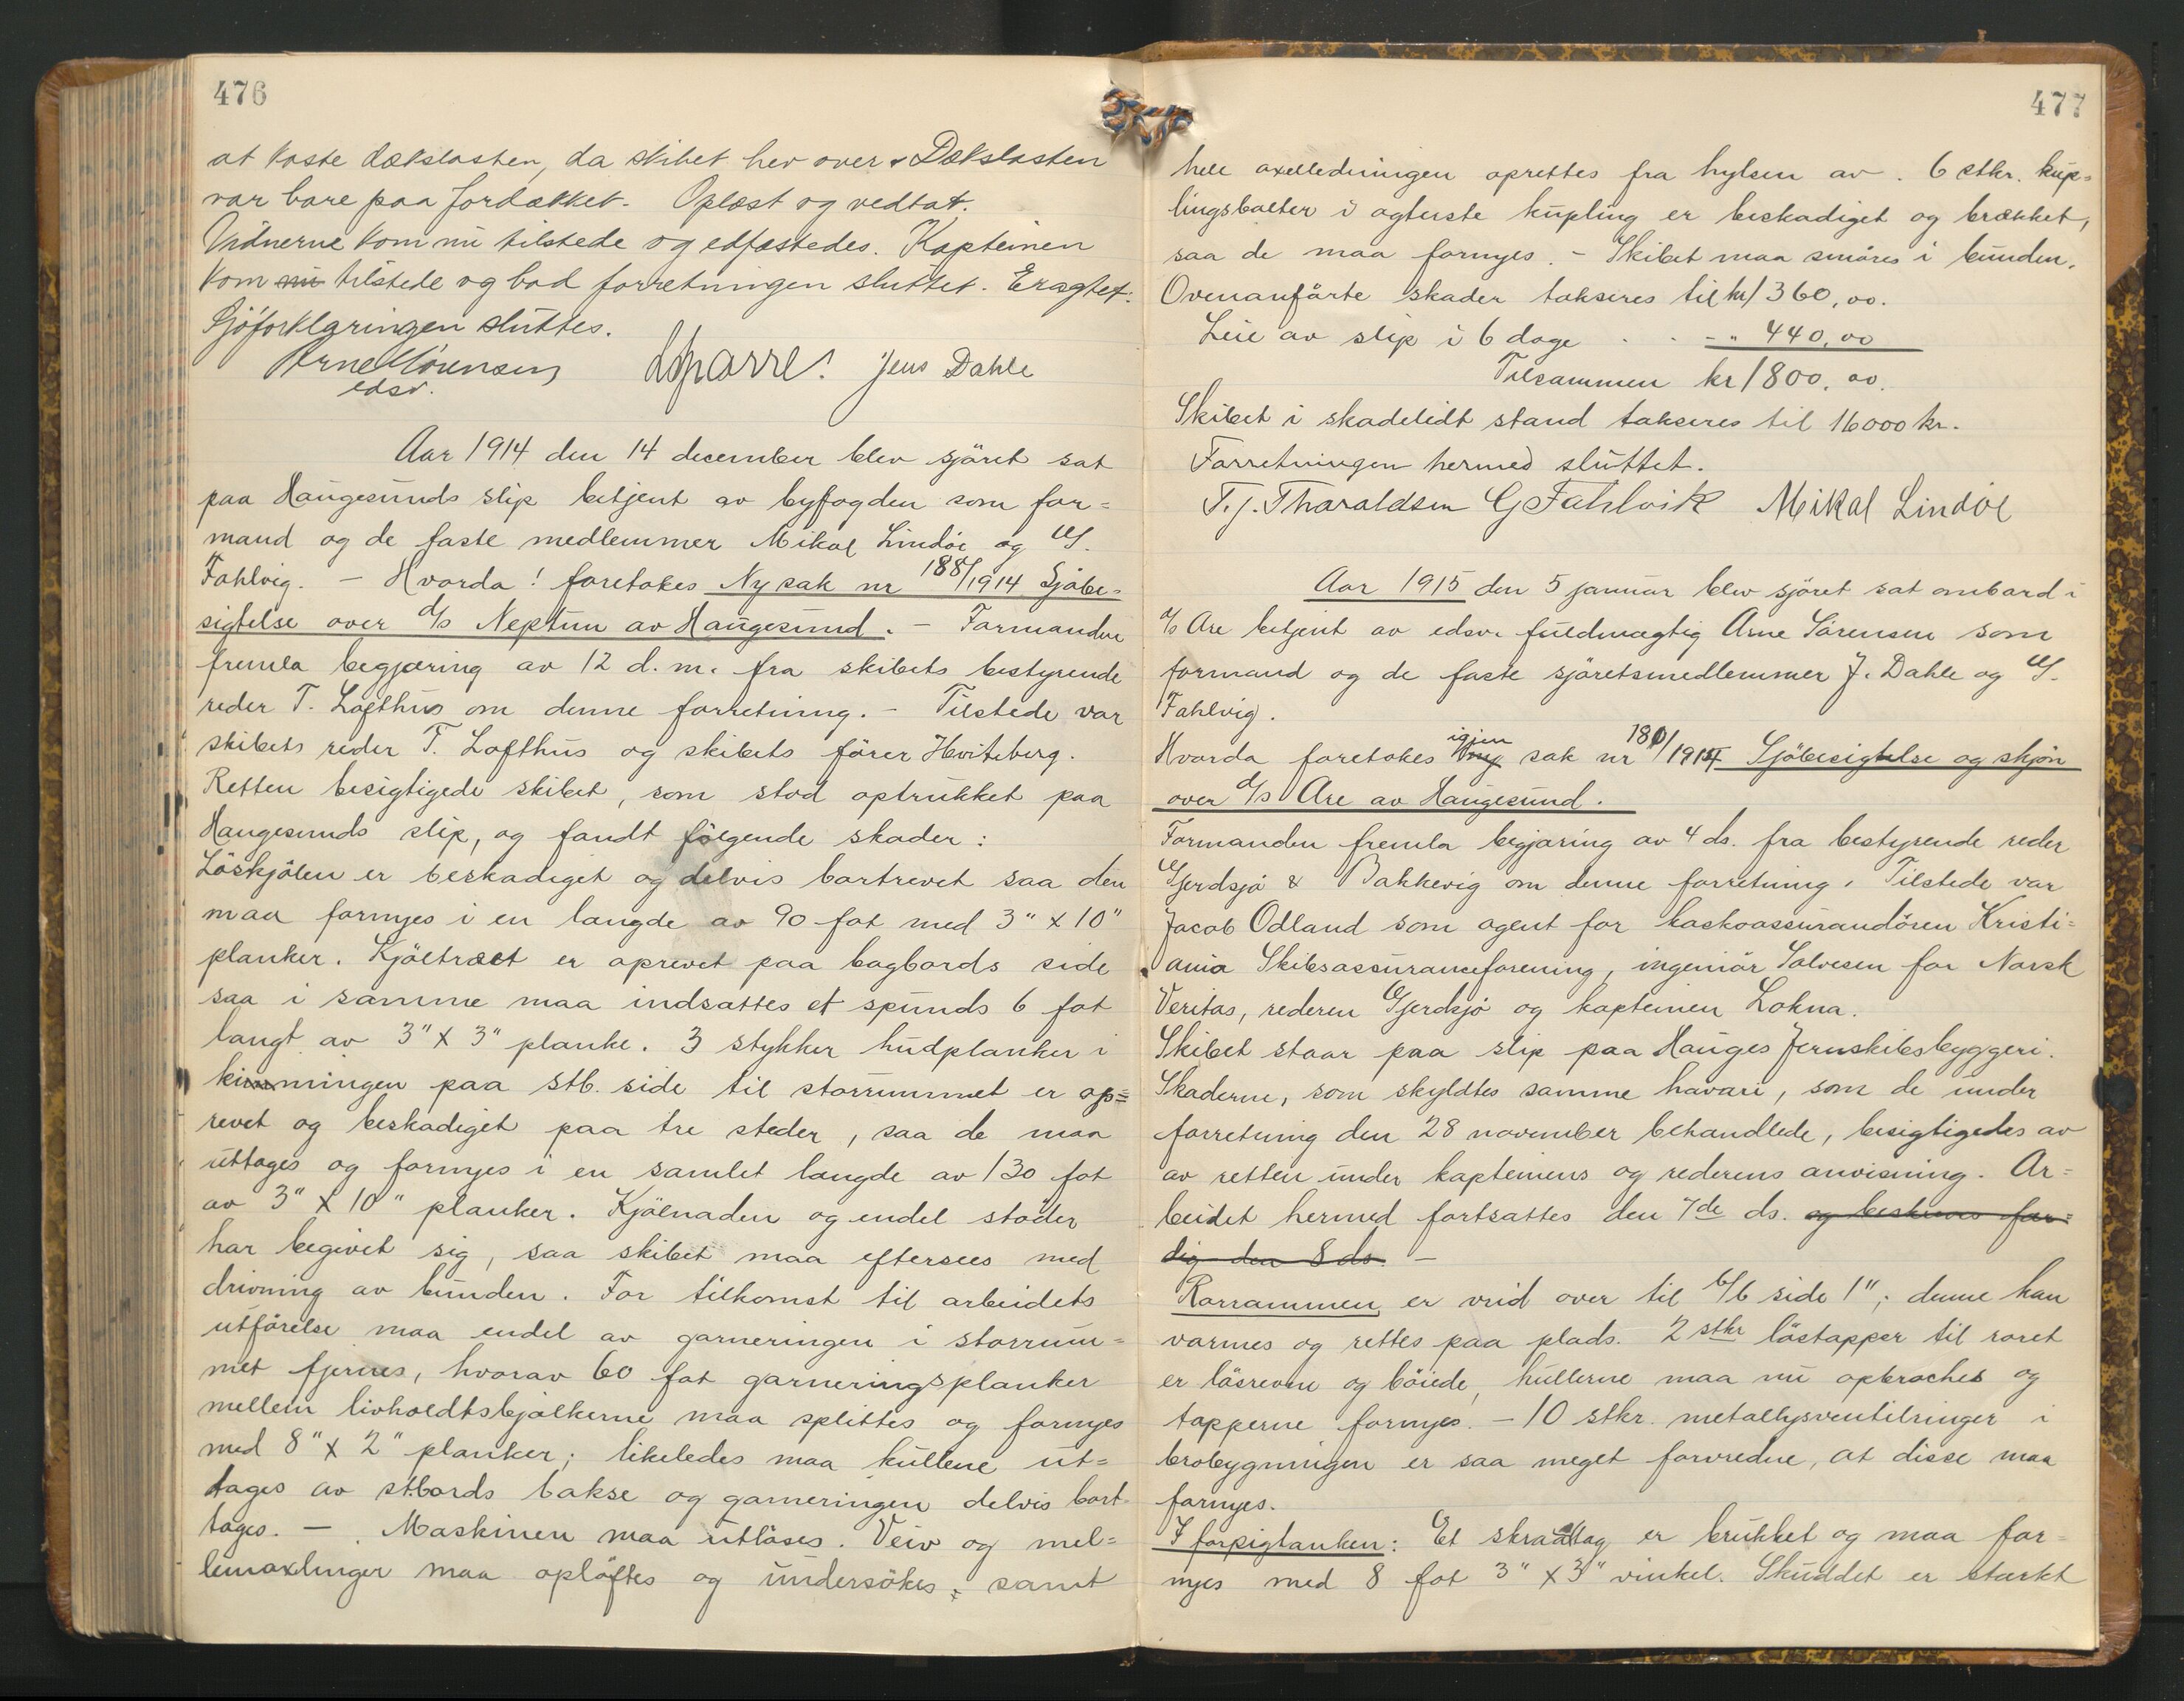 476
at kaste dækslasten, da skibet hev over. Dækslasten
var bare paa fordækket. Oplæst og vedtat.
Vidnerne kom nu tilstede og edfæstedes. Kapteinen
kom nu tilstede og bad forretningen sluttet. Eragtet:
Sjöforklaringen sluttes.
Arne Sörensen LSparre. Jens Dahle
edsv.
Aar 1914 den 14 december blev sjöret sat
paa Haugesunds slip betjent av byfogden som for=
mand og de faste medlemmer Mikal Lindöe og G.
Fahlvig. — Hvorda! foretokes Ny sak nr 188/1914 Sjöbe=
sigtelse over d/s Neptun av Haugesund. — Formanden
fremla begjæring av 12 d.m. fra skibets bestyrende
reder T. Lofthus om denne forretning. — Tilstede var
skibets reder T. Lofthus og skibets förer Hviteberg.
Retten besigtigede skibet, som stod optrukket paa
Haugesunds slip, og fandt fölgende skader:
Löskjölen er beskadiget og delvis bortrevet saa den
maa fornyes i en længde av 90 fot med 3" x 10"
planker. Kjöltræet er oprevet paa bagbords side
saa i samme maa indsættes et spunds 6 fot
langt av 3" x 3" planke. 3 stykker hudplanker i
kimmingen paa stb. side til storrummet er op=
revet og beskadiget paa tre steder, saa de maa
uttages og fornyes i en samlet længde av 130 fot
av 3" x 10" planker. Kjölnaden og endel stöder
har begivet sig, saa skibet maa eftersees med
drivning av bunden. For tilkomst til arbeidets
utförelse maa endel av garneringen i storrum=
met fjernes, hvorav 60 fot garneringsplanker
mellem livholdtsbjælkerne maa splittes og fornyes
med 8" x 2" planker; likeledes maa kullene ut=
tages av stbords bakse og garneringen delvis bort
tages. — Maskinen maa utlöses. Veiv og mel=
lemaxlinger maa oplöftes og undersökes; samt
477
hele axelledningen oprettes fra hylsen av. 6 stkr. kup=
lingsbolter i agterste kupling er beskadiget og brækket,
saa de maa fornyes. — Skibet maa smöres i bunden.
Ovenanförte skader takseres til kr 1360,00.
Leie av slip i 6 dage . . - " 440,00
Tilsammen kr 1800,00.
Skibet i skadelidt stand takseres til 16000 kr.
Forretningen hermed sluttet.
T.J. Tharaldsen G Fahlvik Mikal Lindöe
Aar 1915 den 5 januar blev sjöret sat ombord i
d/s Are betjent av edsv. fuldmægtig Arne Sörensen som
formand og de faste sjöretsmedlemmer J. Dahle og G.
Fahlvig.
Hvorda foretokes ny igjen sak nr 180/1914 Sjöbesigtelse og skjön
over d/s Are av Haugesund.
Formanden fremla begjæring av 4 ds. fra bestyrende reder
Gjerdsjö & Bakkevig om denne forretning. Tilstede var
Jacob Odland som agent for kaskoassurandören Kristi=
ania Skibsassuranceforening, ingeniör Salvesen for Norsk
Veritas, rederen Gjerdsjö og kapteinen Lokna.
Skibet staar paa slip paa Hauges Jernskibsbyggeri.
Skaderne, som skyldtes samme havari, som de under
forretning den 28 november behandlede, besigtigedes av
av retten under kapteinens og rederens anvisning. Ar=
beidet hermed fortsattes den 7de ds. og beskreves fær=
dig den 8 ds. —
Rorrammen er vrid over til b/b side 1"; denne kan
varmes og rettes paa plads. 2 stkr löstapper til roret
er lösrevne og böiede, hullerne maa nu opbroches og
tapperne fornyes. — 10 stkr. metallysventilringer i
brobygningen er saa meget forvredne, at disse maa
fornyes.
I forpigtanken: Et skraastag er brukket og maa for=
nyes med 8 fot 3" x 3" vinkel. Skuddet er stærkt